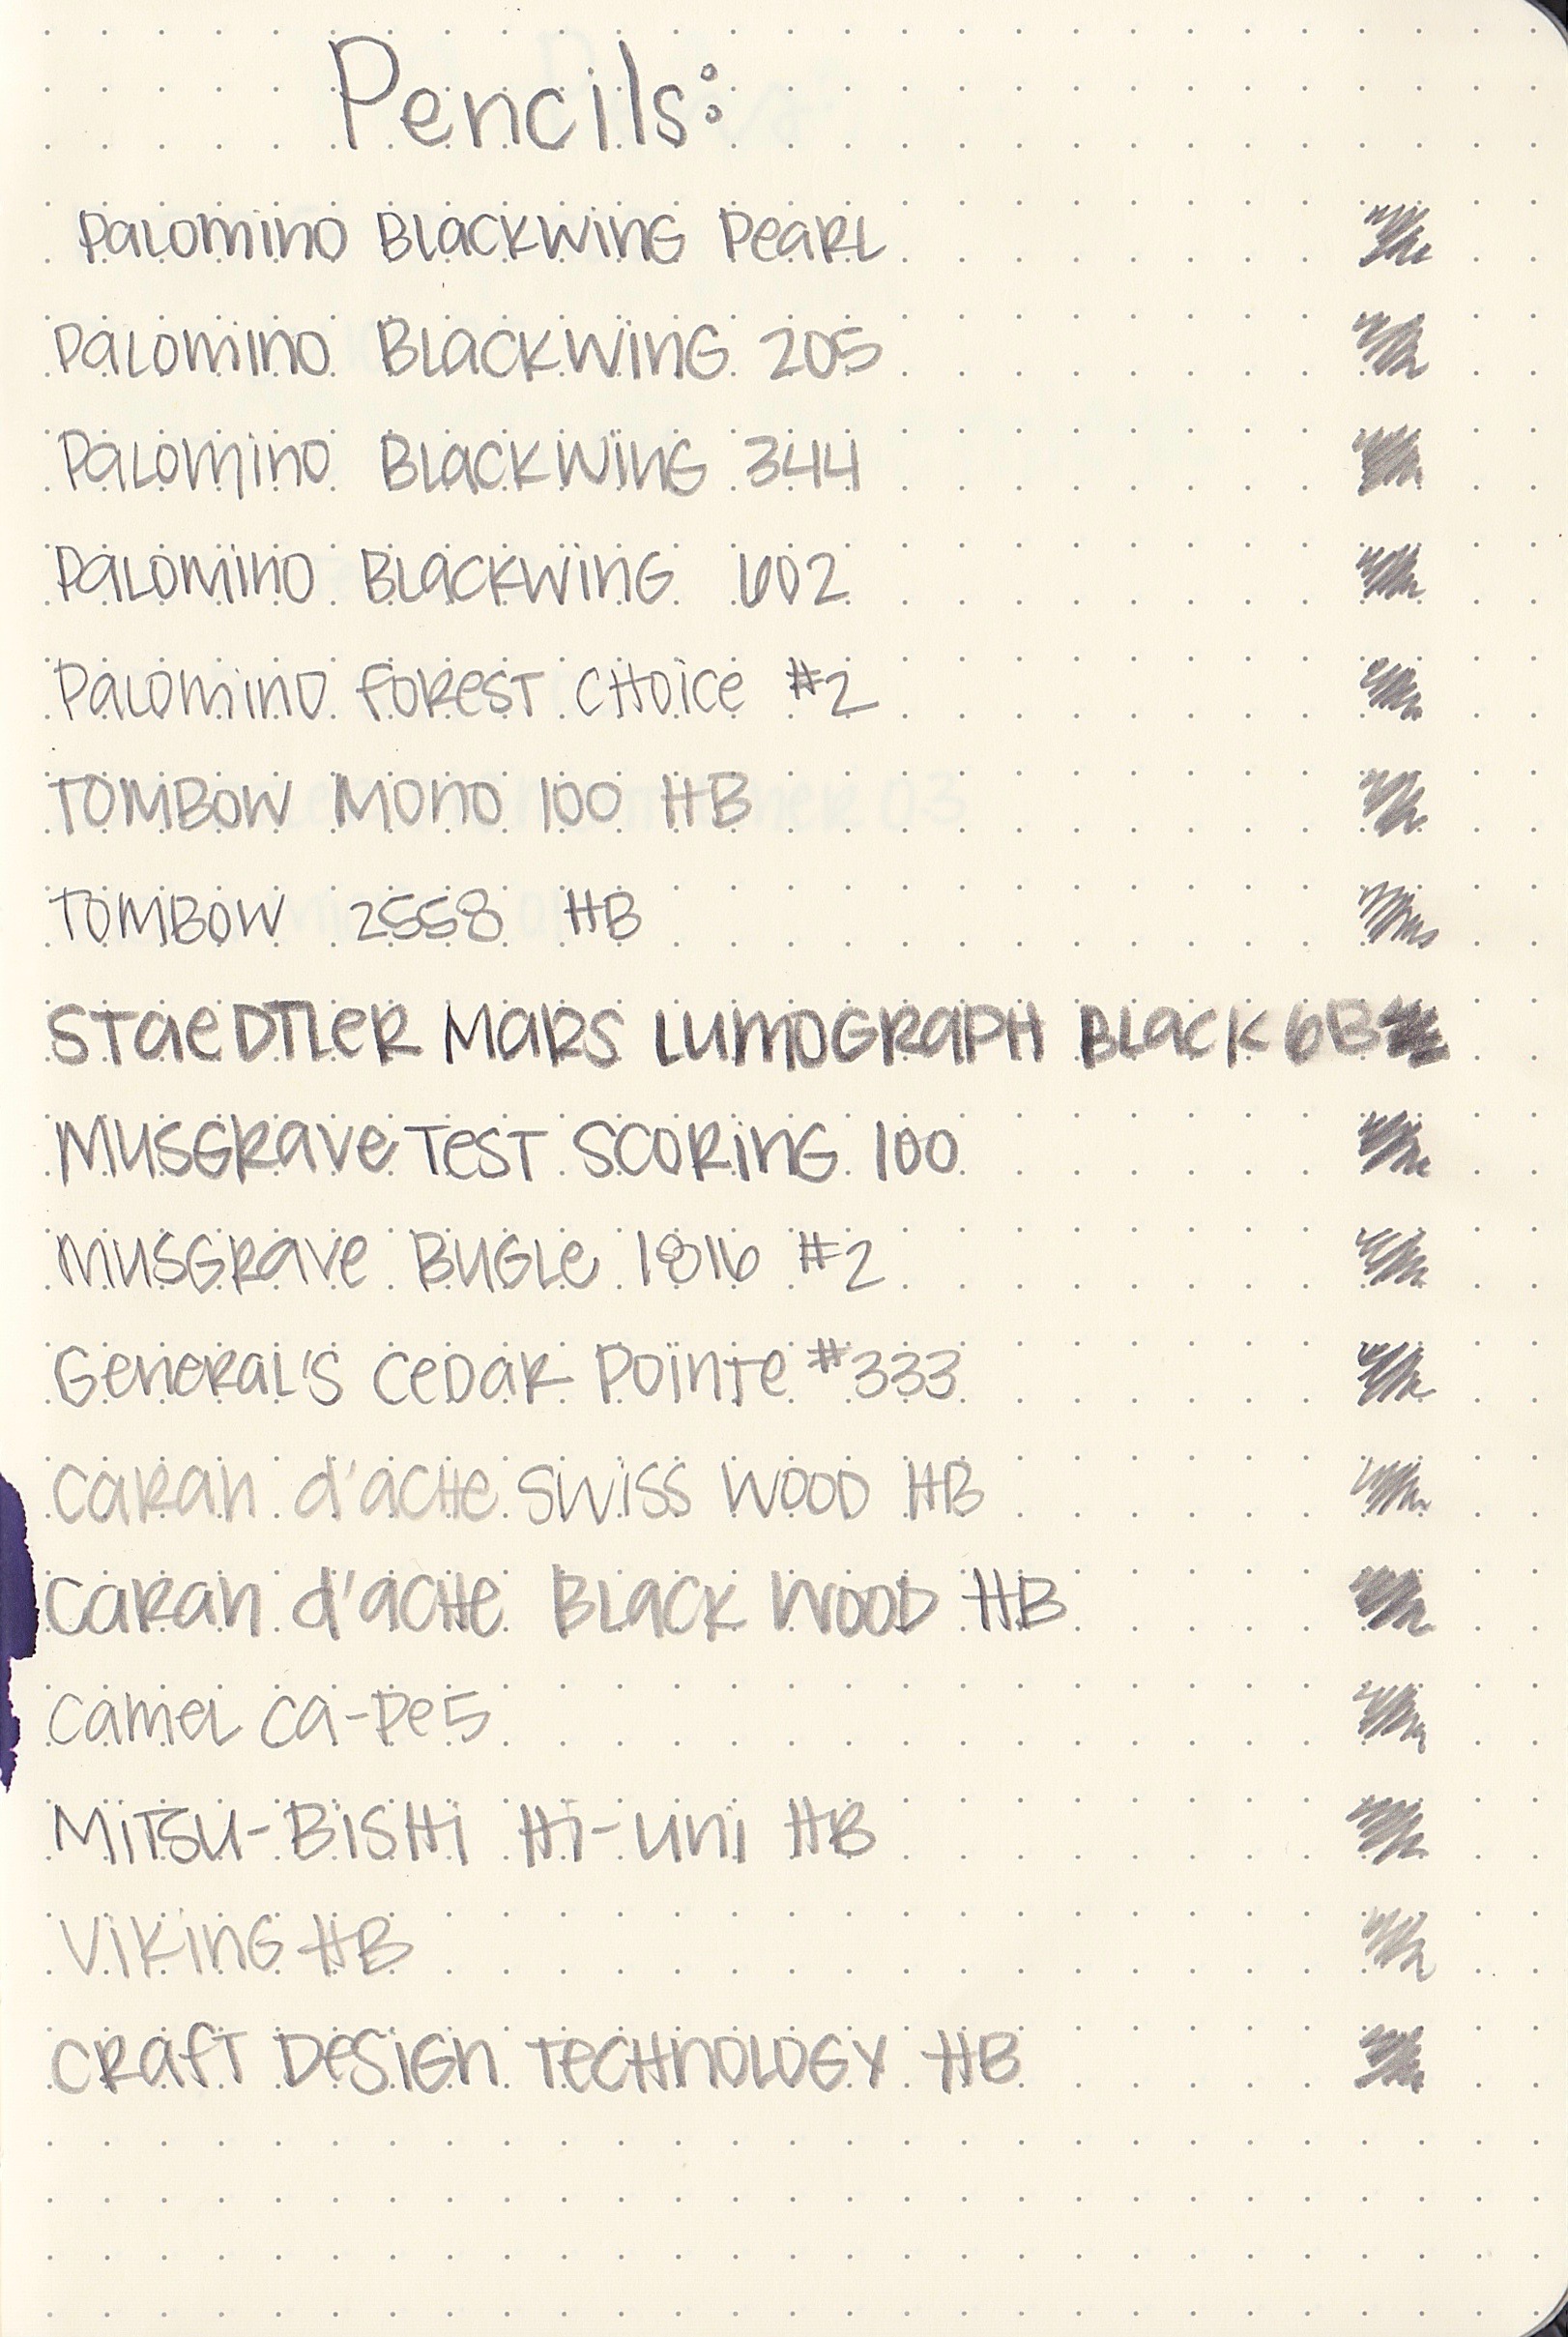 Pencils:
Palomino Blackwing Pearl
Palomino Blackwing 205
Palomino Blackwing 344
Palomino Blackwing 602
Palomino Forest Choice #2
Tombow Mono 100 HB
Tombow 2558 HB
Staedtler Mars Lumograph Black 6B
Musgrave Test Scoring 100
Musgrave Bugle 1816 #2
General's Cedar Pointe #333
Caran d'ache Swiss Wood HB
Caran d'ache Black Wood HB
Camel CA-Pe5
Mitsu-Bishi Hi-Uni HB
Viking HB
Craft Design Technology HB